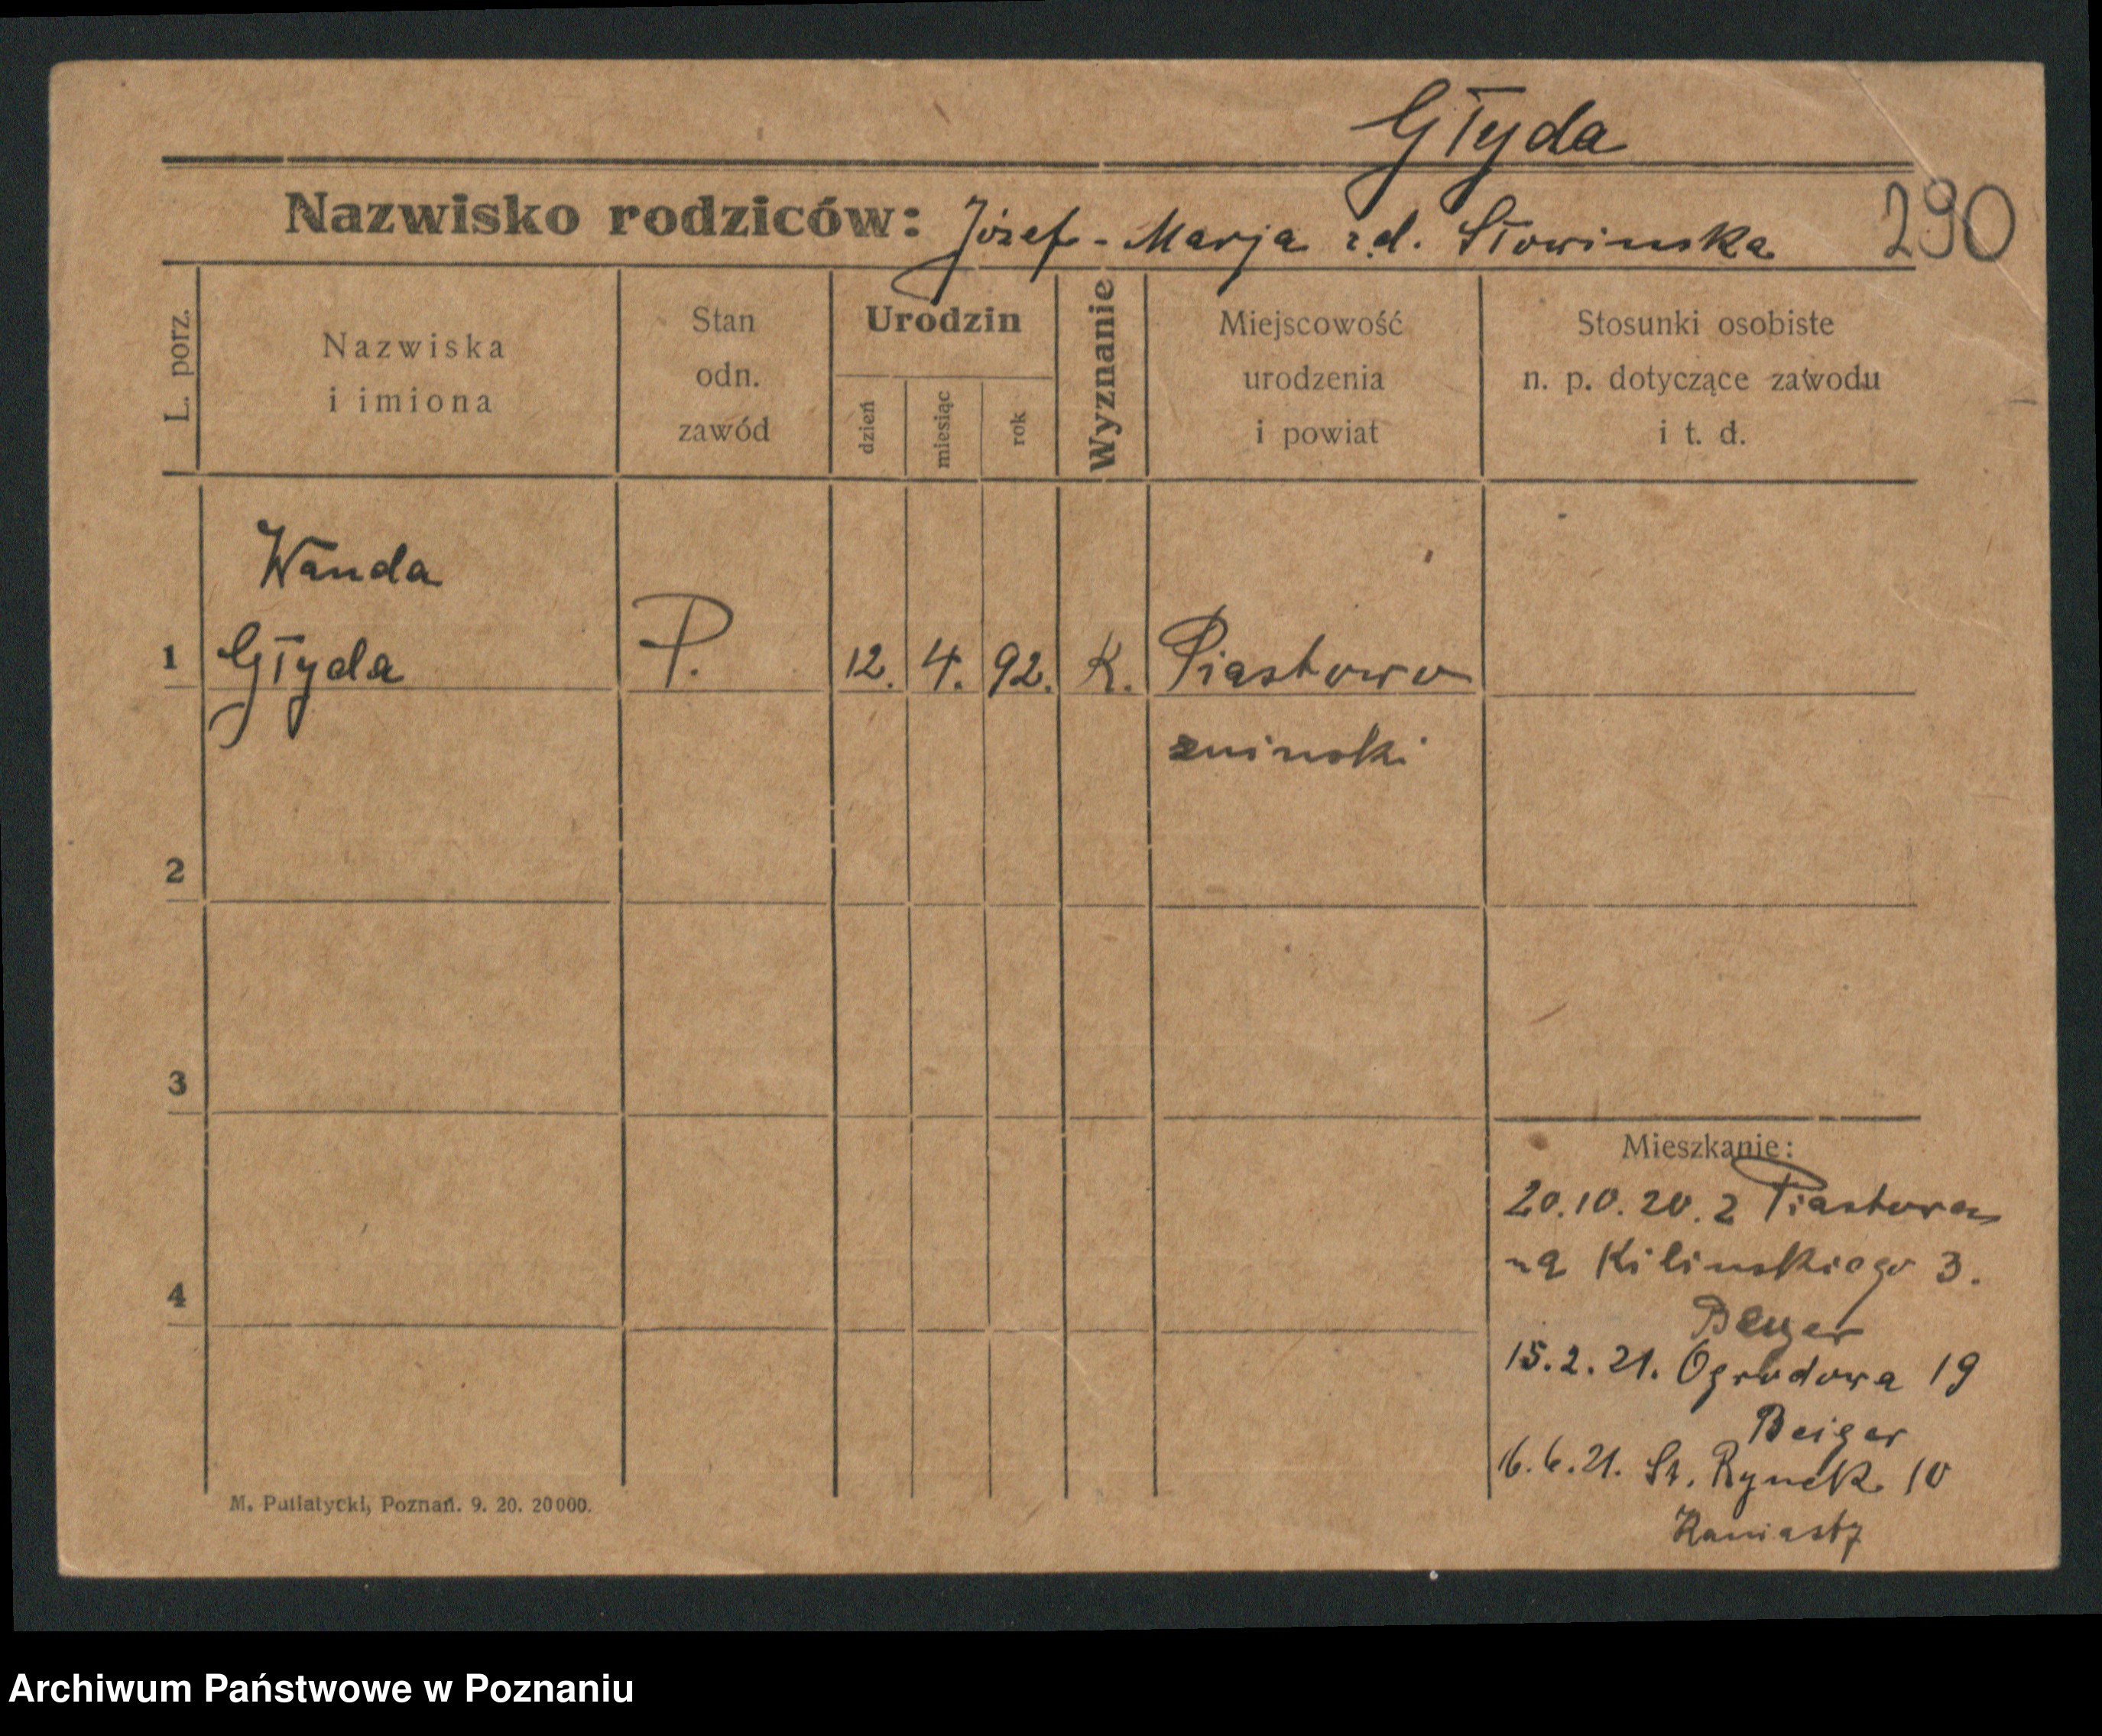 Głyda
Nazwisko rodziców: Józef - Marja z d. Słowinska 290
L. porz.
Nazwiska
i imiona
Stan
odn.
zawód
Urodzin
dzień
miesiąc
rok
Wyznanie
Miejscowość
urodzenia
i powiat
Stosunki osobiste
n. p. dotyczące zawodu
i t. d.
Wanda
1 Głyda P. 12. 4. 92. K. Piastowo
zninski
2
3
4
Mieszkanie:
20.10.20. z Piastowa
na Kilinskiego 3.
Beyer
15.2.21. Ogrodowa 19
Beiger
16.6.21. St. Rynek 10
M. Putiatycki, Poznań. 9. 20. 20000.
Archiwum Państwowe w Poznaniu